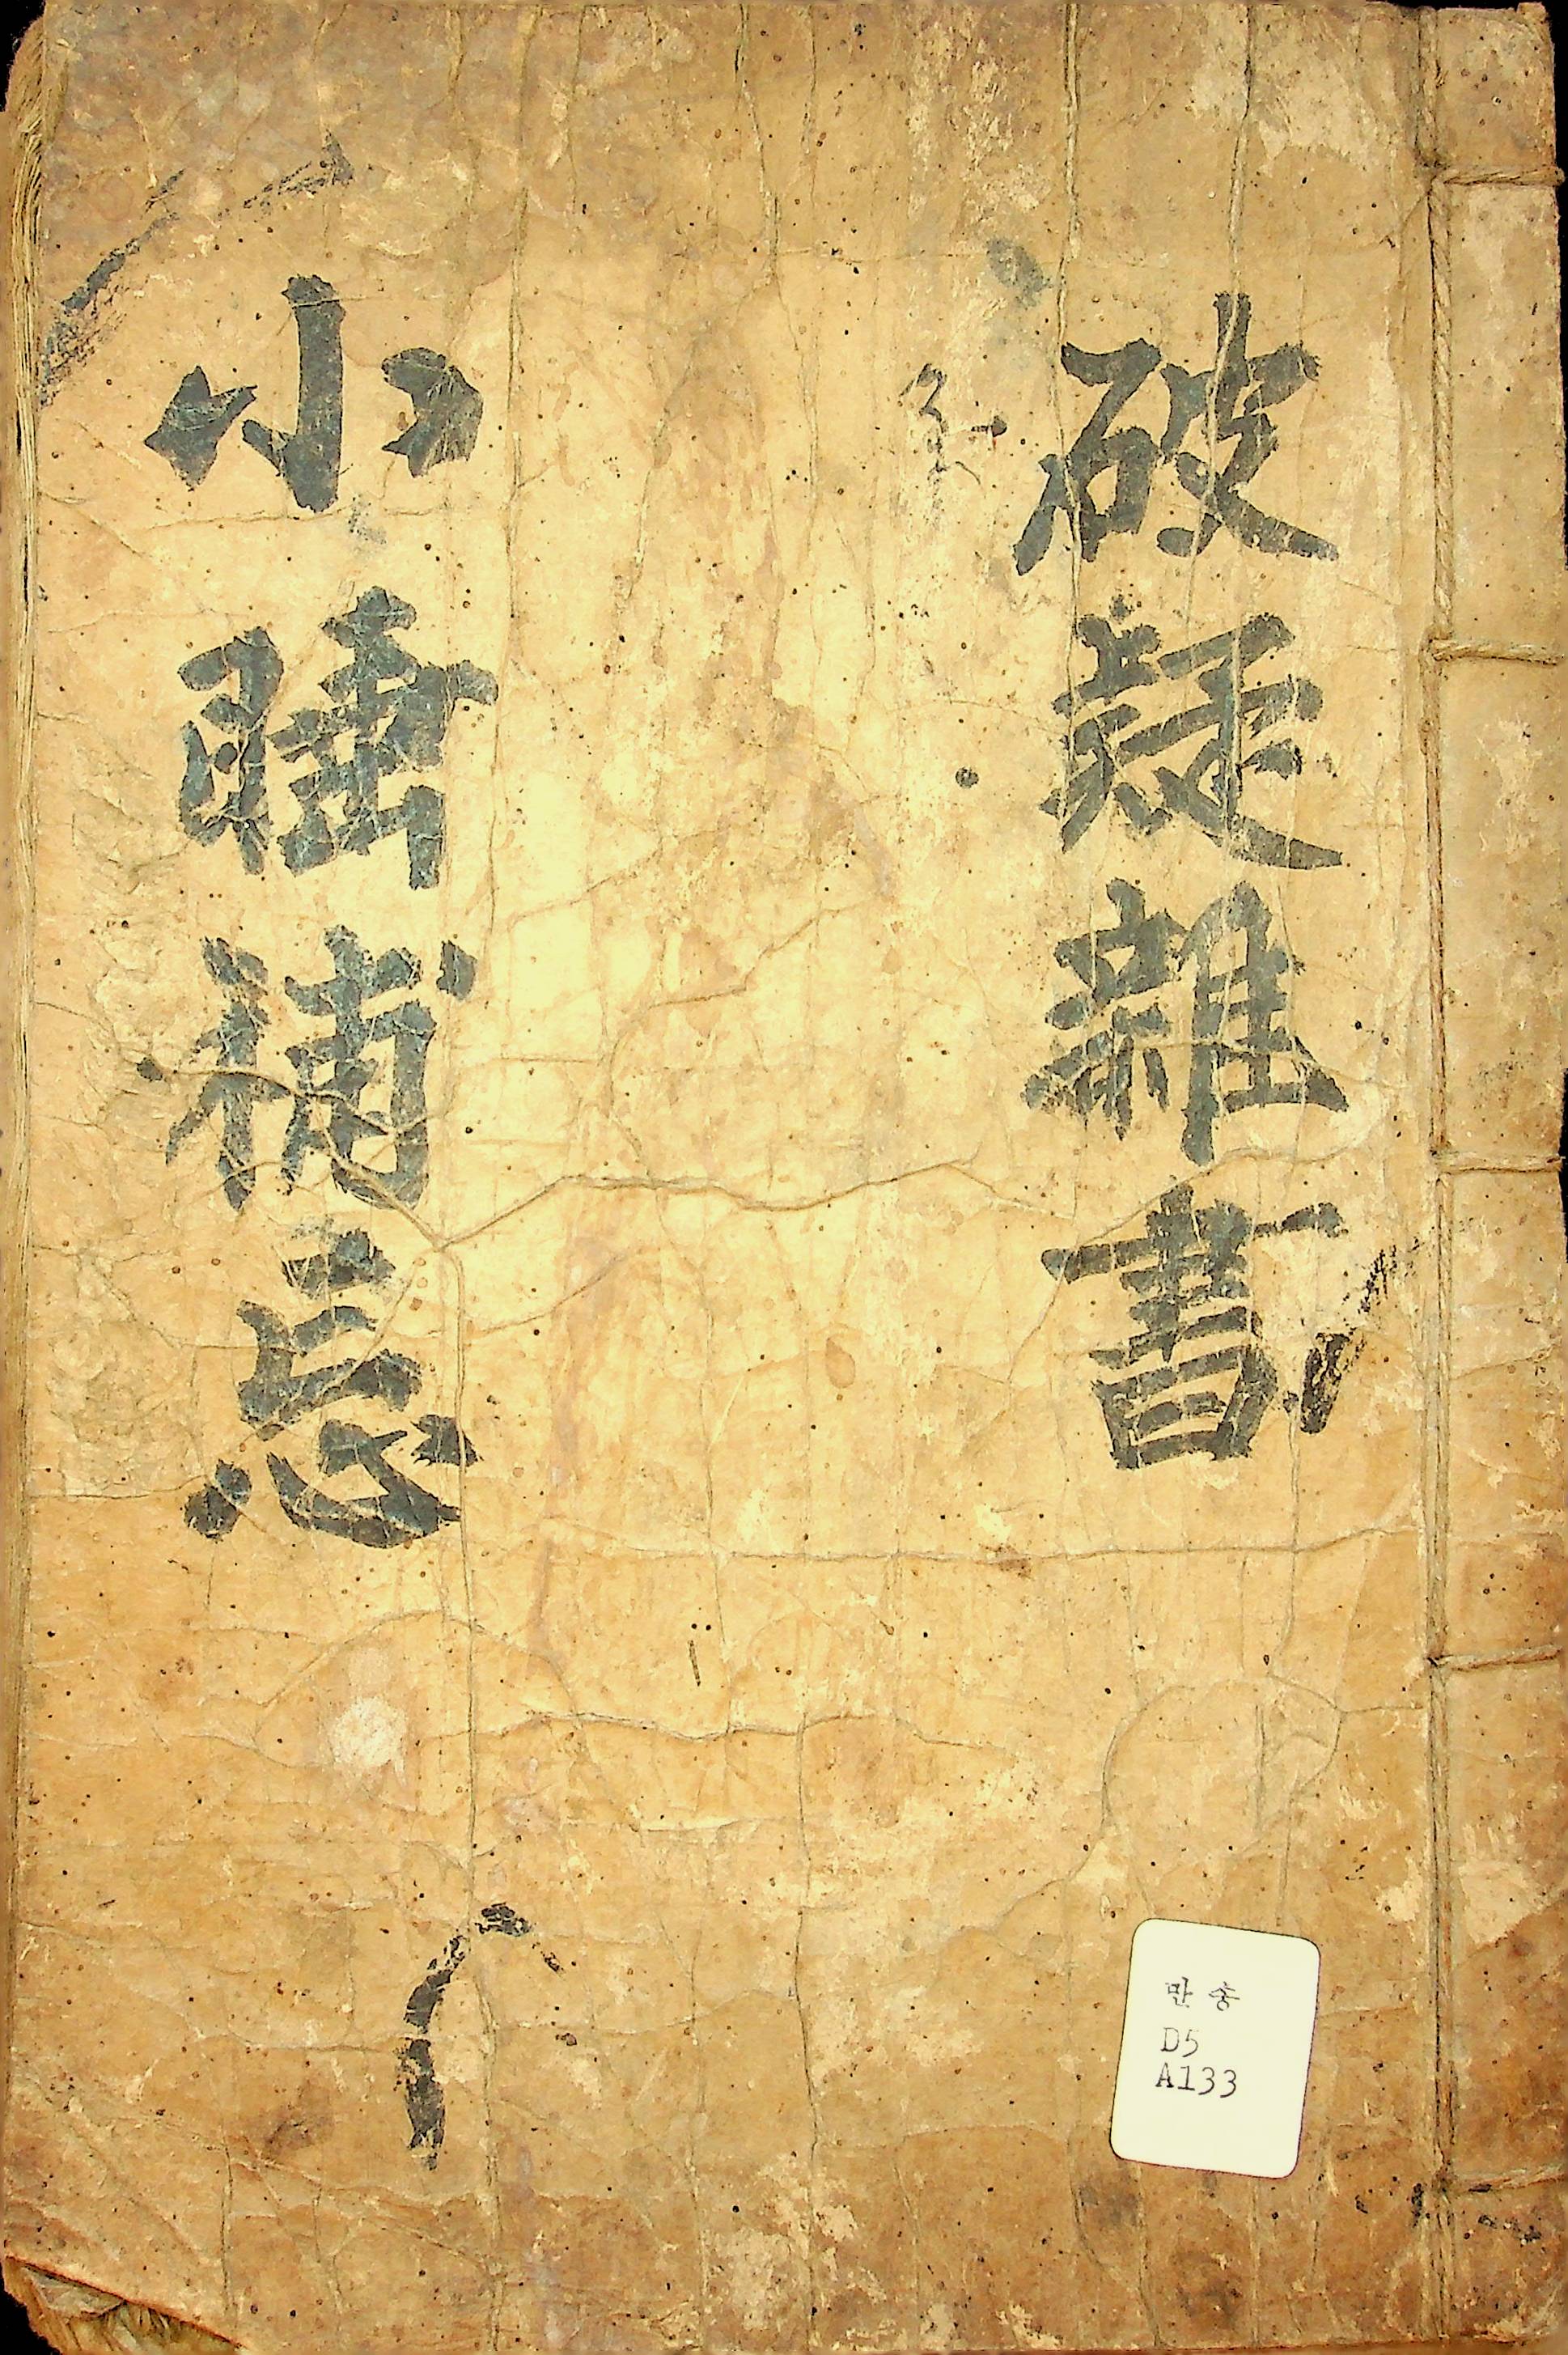 破疑雜書
小睡補忘
만송
D5
A133